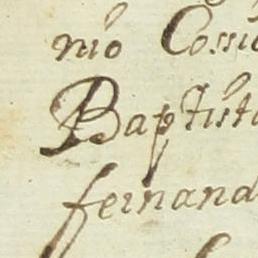 nio Cossio
Baptista
fernand